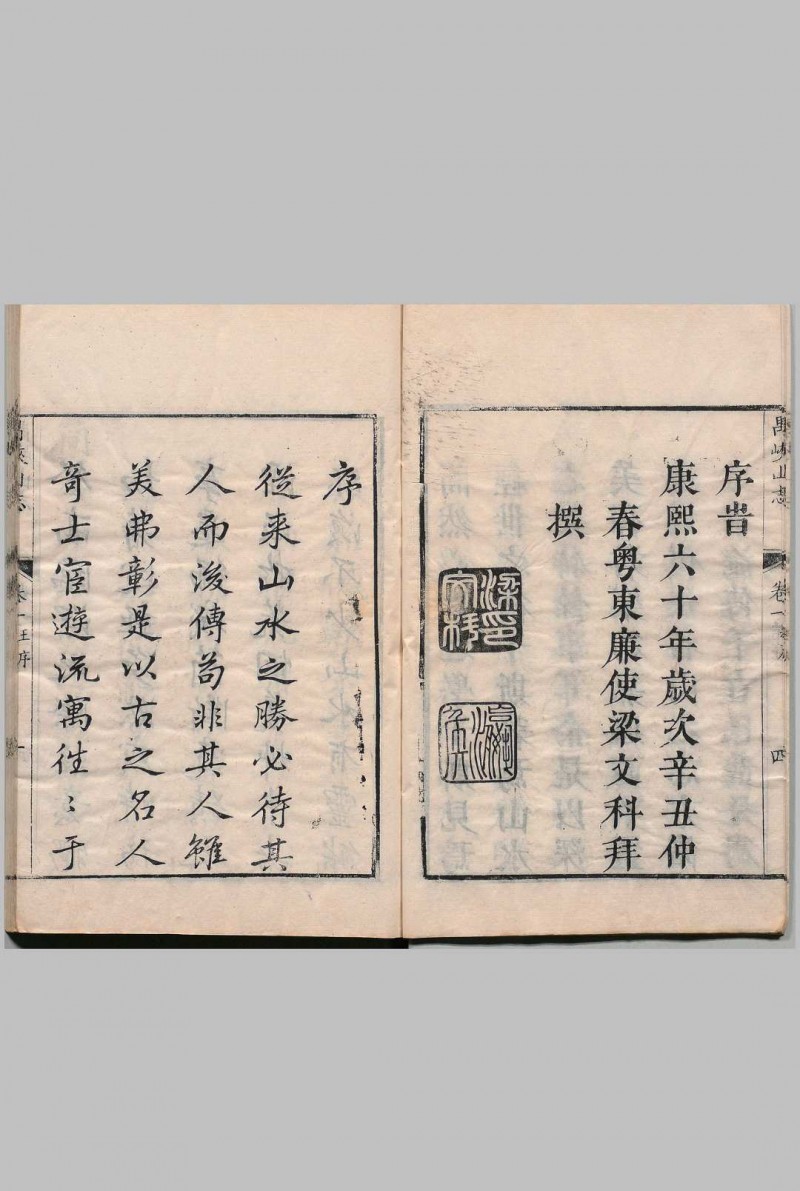 禺峽山志 卷一 四
序旹
康熙六十年歲次辛丑仲
春粵東廉使梁文科拜
撰
梁印文科
序
從来山水之勝必待其
人而後傳苟非其人雖
美弗彰是以古之名人
竒士宦遊流寓徃〻于
禺峽山志 卷一王序 一